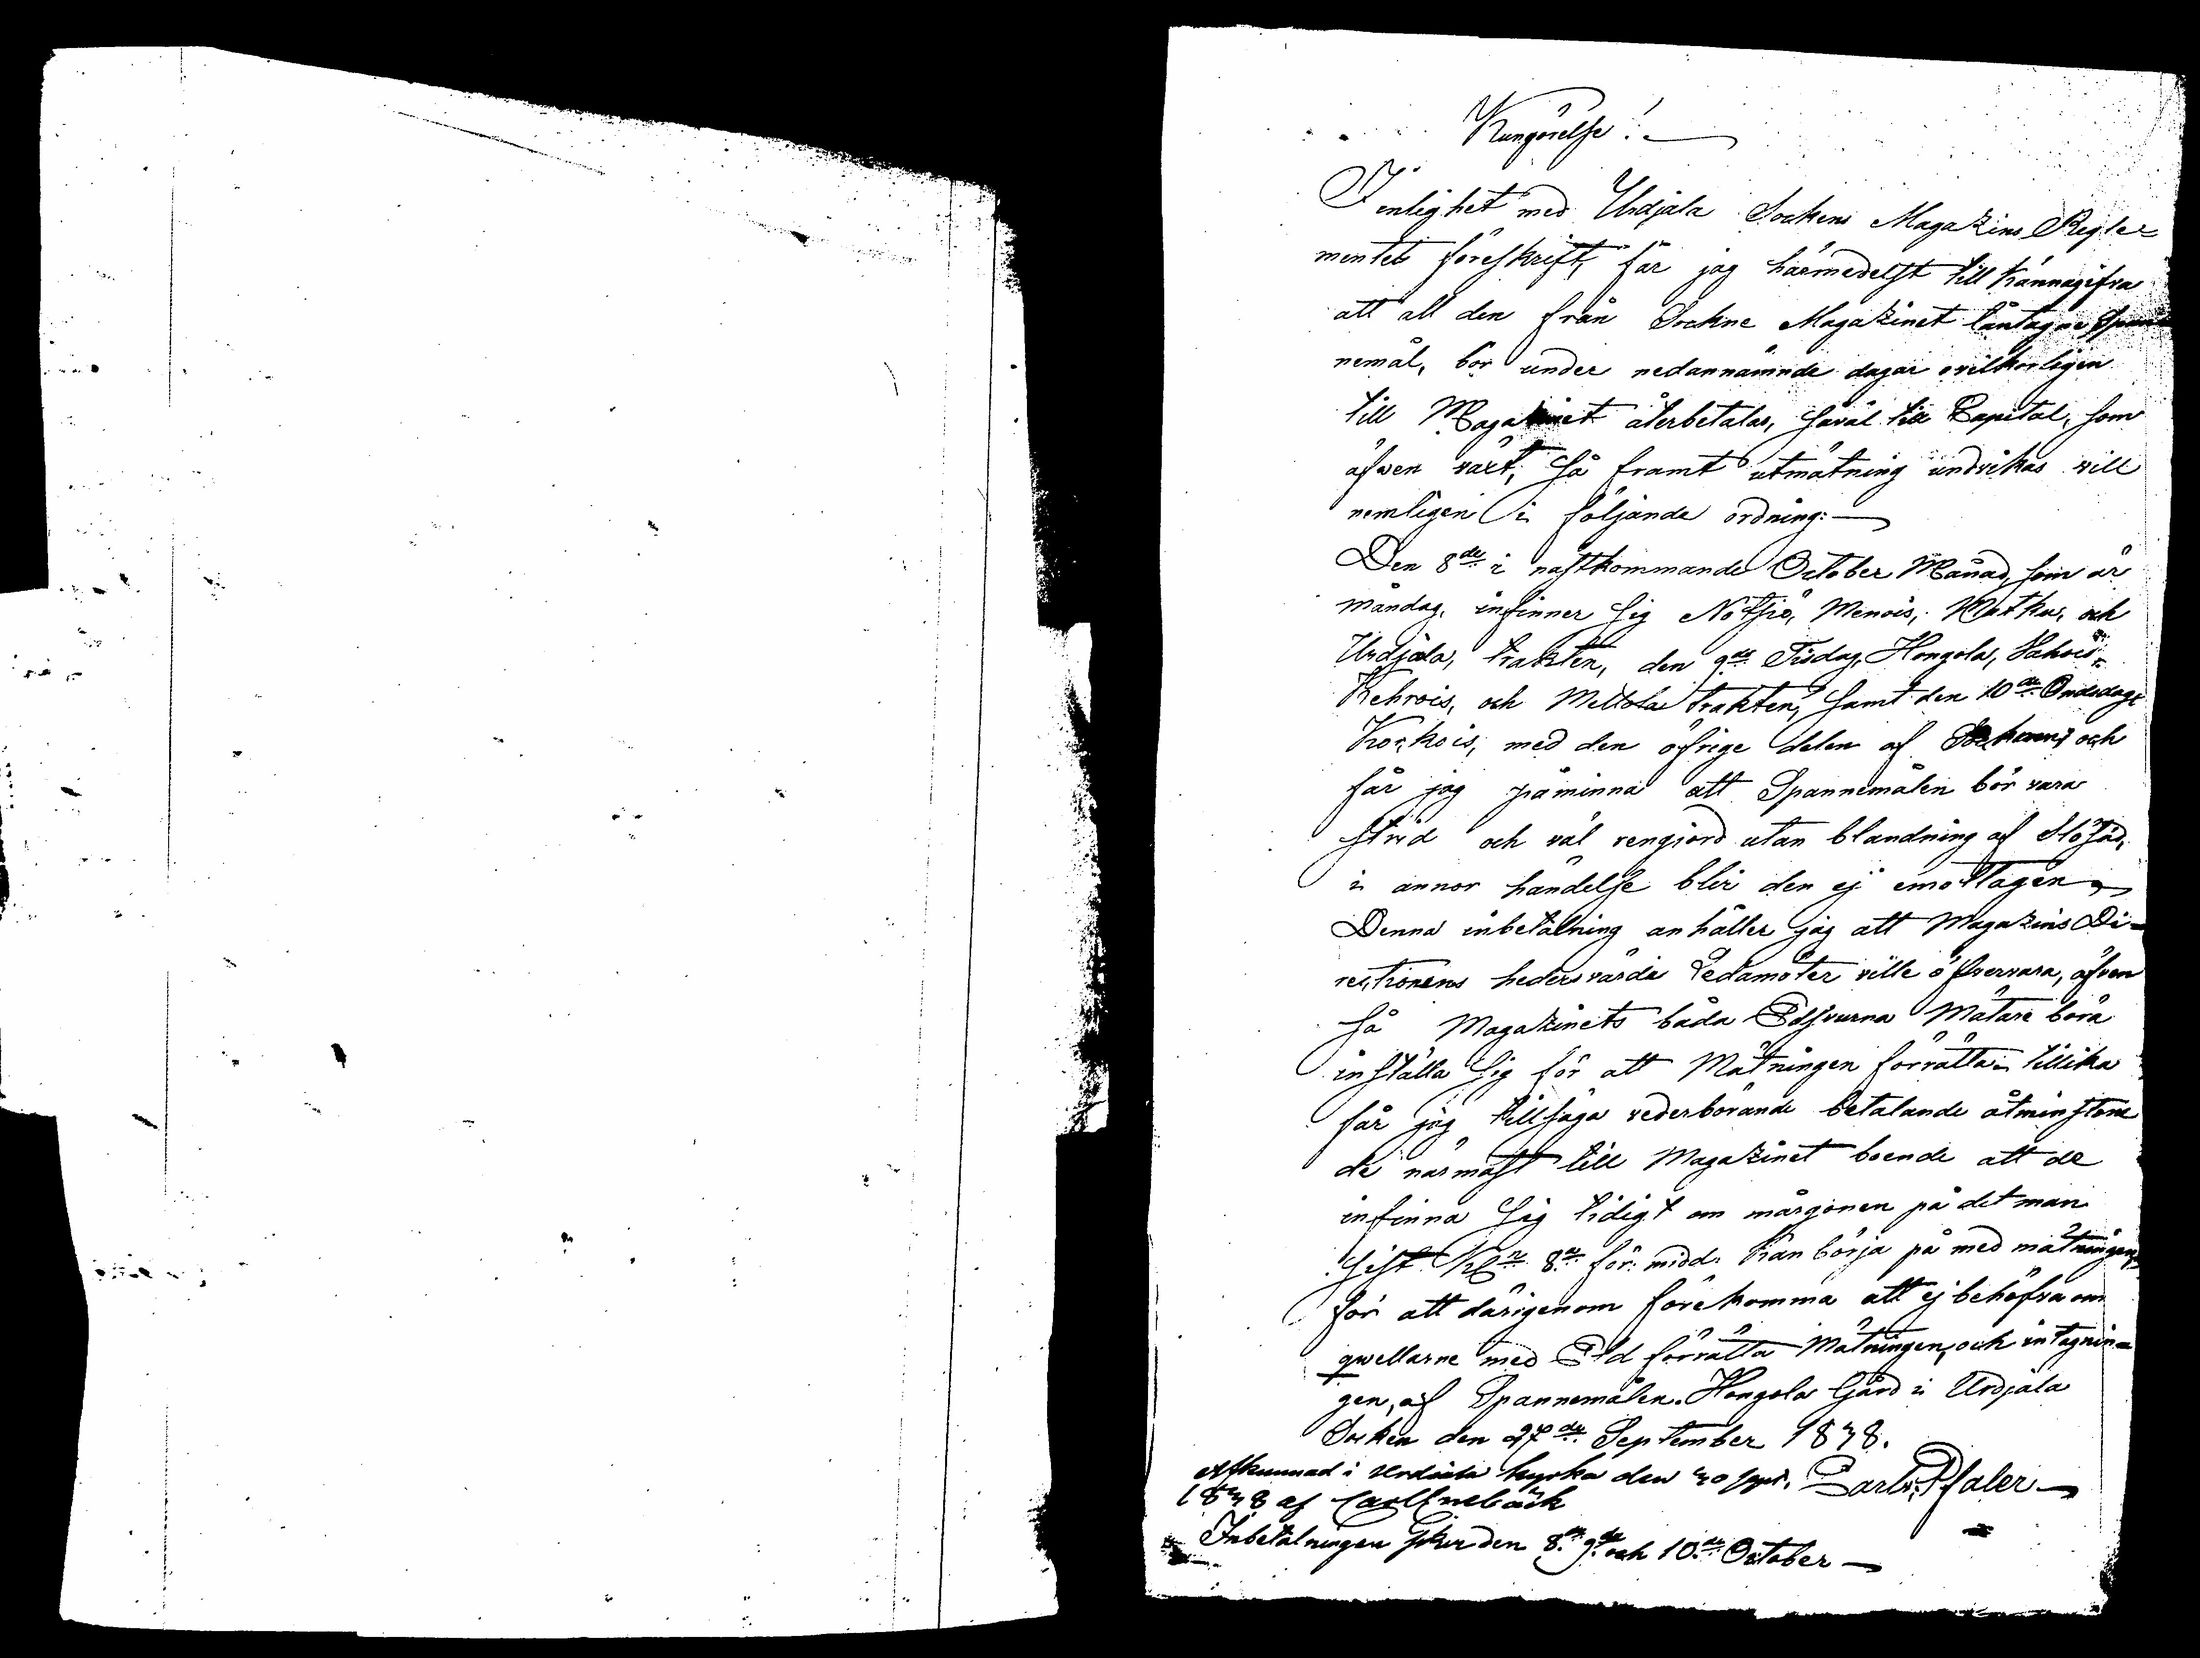 Kungörelse!
I enlighet med Urdjala Sockens Magazins Regle-
mentets föreskrift, får jag härmedelst till kännagifva
att all den från Sockne Magazinet låntagne Span-
nemål, bör under nedannämnde dagar ovilkorligen
till Magazinet återbetalas, såväl till Capital, som
äfven växt, så framt utmätning undvikas vill
nemligen i följande ordning:
Den 8de i nästkommande October Månad, som är
måndag, infinner sig Nötsjö, Menois, Matku, och
Urdjala, trakten, den 9de Tisdag, Hongola, Sahois,
Kehrois, och Mellola trakten, samt den 10de Onsdag,
Korkois, med den öfrige delen af Socknen; och
får jag påminna att Spannemålen bör vara
strid och väl rengjord utan blandning af Slösäd,
i annor händelse blir den ej emottagen
Denna inbetalning anhåller jag att Magazins Di-
rectionens hedersvärde Ledamöter ville öfvervara, äfven
så Magazinets båda Edsvurna Mätare böra
inställa sig för att Mätningen förrätta, tillika
får jag tillsäga vederbörande betalande åtminstone
de närmast till Magazinet boende att de
infinna sig tidigt om mårgonen på det man
sist Kln 8a för midd. kan börja på med mätningen,
för att därigenom förekomma att ej behöfva om
qwellarne med Eld förrätta Mätningen, och intagnin-
gen, af Spannemålen. Hongola Gård i Urdjala
Socken den 27de September 1838.
Afkunnad i Urdiala kyrka den 30 sept. Carl Pfaler
1838 af Carl Enebäck
Inbetalningen sker den 8de 9de och 10de October